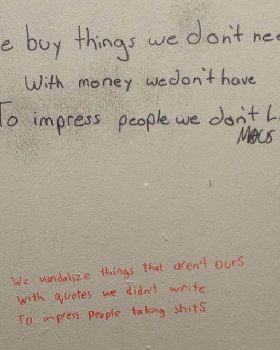 e buy things we don't nee
With money we don't have
To impress people we don't L
We vandalize things that aren't ours
With quotes we didn't write
To impress people taking shits